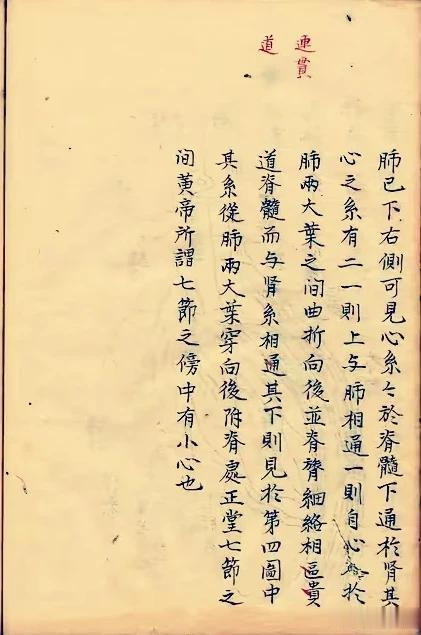 連貫
道
肺已下右側可見心系々於脊髓下通於肾其
心之系有二一則上与肺相通一則自心入於
肺兩大葉之间曲折向後並脊膂細絡相區貴
道脊髓而与肾系相通其下則見於第四圖中
其系從肺兩大葉穿向後附脊處正堂七節之
间黄帝所謂七節之傍中有小心也